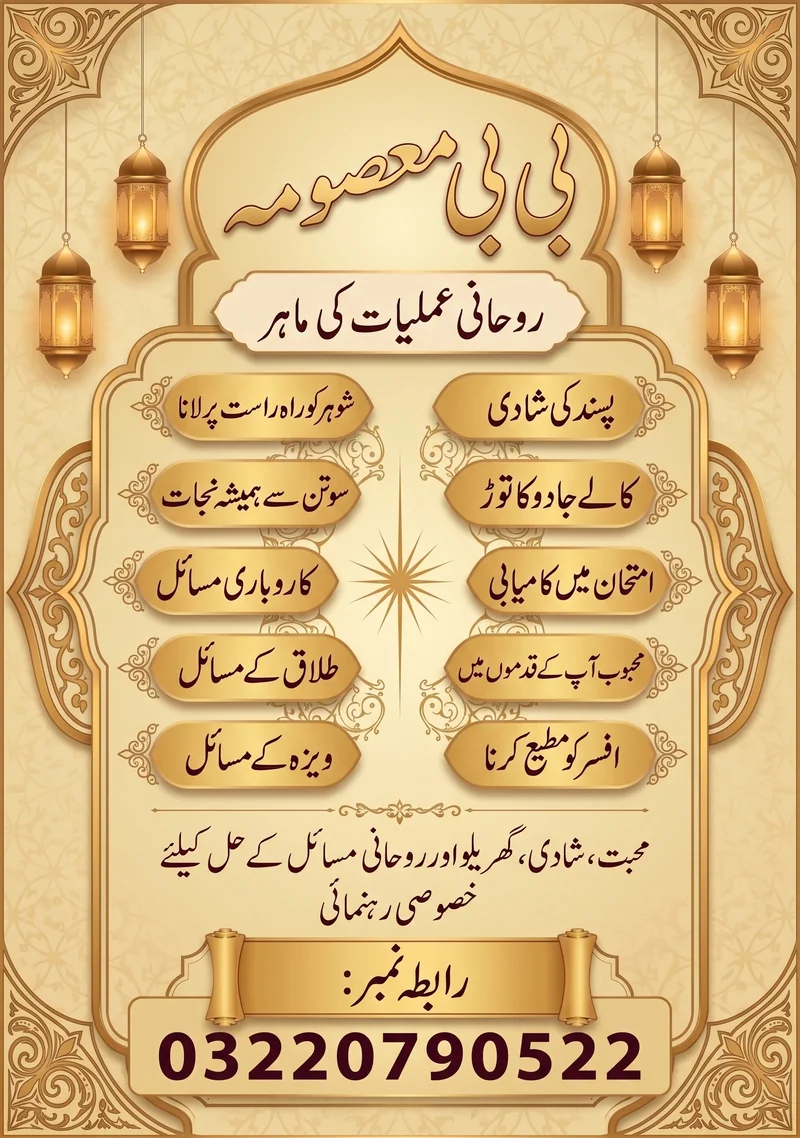 بی بی معصومہ
روحانی عملیات کی ماہر
پسند کی شادی
شوہر کو راہ راست پر لانا
کالے جادو کا توڑ
سوتن سے ہمیشہ نجات
امتحان میں کامیابی
کاروباری مسائل
محبوب آپ کے قدموں میں
طلاق کے مسائل
افسر کو مطیع کرنا
ویزہ کے مسائل
محبت، شادی، گھریلو اور روحانی مسائل کے حل کیلئے
خصوصی رہنمائی
رابطہ نمبر:
03220790522